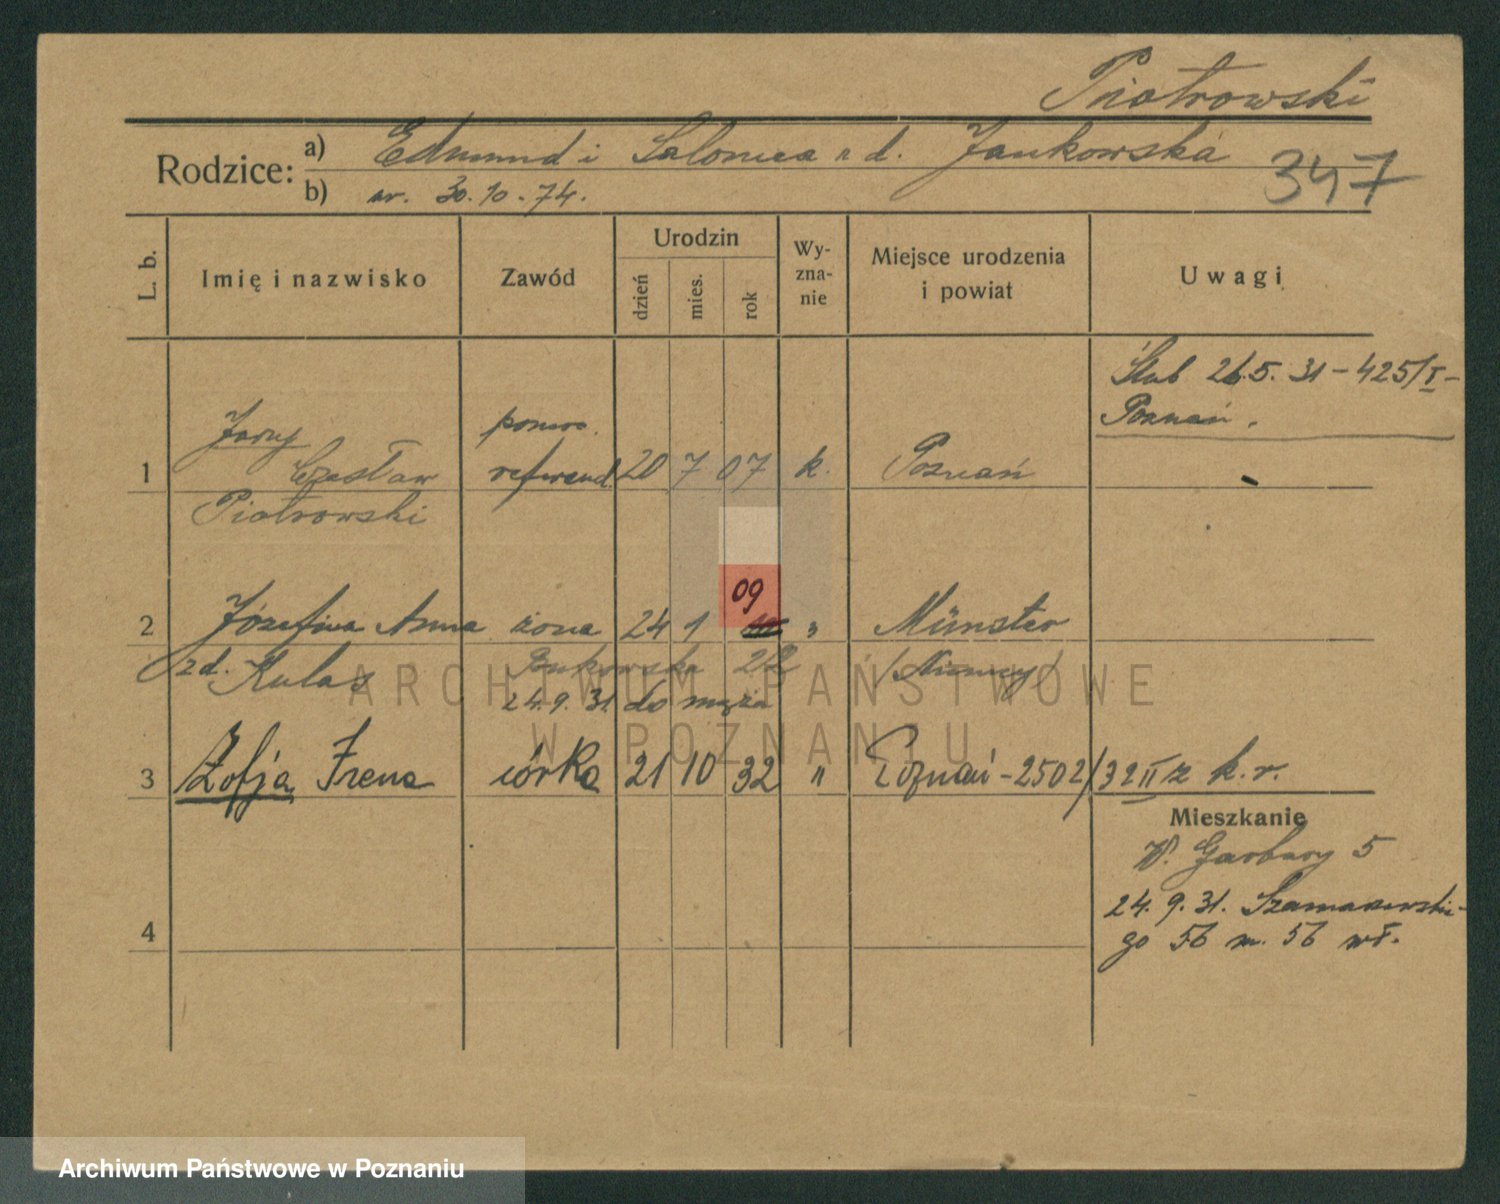 Piotrowski
Rodzice: a) Edmund i Salomea z d. Jankowska
b) ur. 30.10.74.
347
L. b.
Imię i nazwisko
Zawód
Urodzin
dzień
mies.
rok
Wy-
zna-
nie
Miejsce urodzenia
i powiat
Uwagi
Ślub 26.5.31-425/I-
Poznań.
Jerzy pomoc.
1 Czesław referend. 20 7 07 k. Poznań
Piotrowski
09
2 Józefina Anna żona 24 1 " Münster
z d. Kulas 22 /Niemcy/
24.9.31. do męża
3 Zofja Irena córka 21 10 32 " Poznań-2502/32 II z k.r.
Mieszkanie
W. Garbary 5
24.9.31. Szamarzewskie-
go 56 m. 56 wł.
4
ARCHIWUM PAŃSTWOWE
W POZNANIU
Archiwum Państwowe w Poznaniu